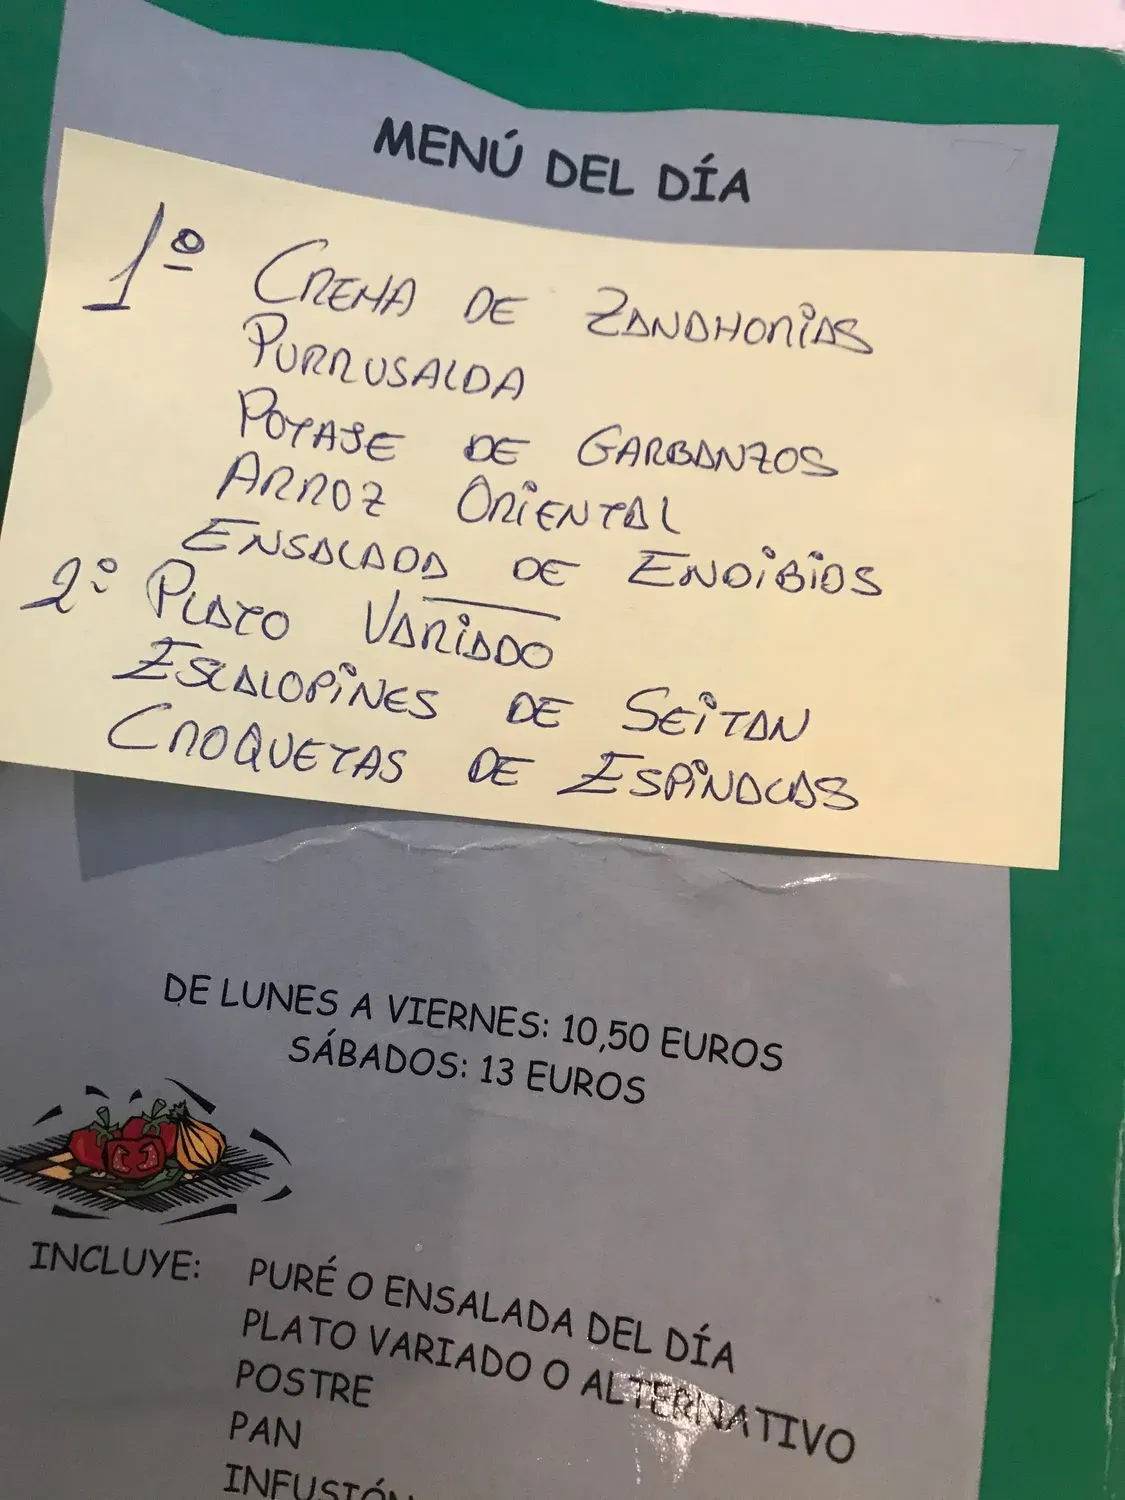 MENÚ DEL DÍA
1º CREMA DE ZANAHORIAS
PURRUSALDA
POTAJE DE GARBANZOS
ARROZ ORIENTAL
ENSALADA DE ENDIBIAS
2º PLATO VARIADO
ESCALOPINES DE SEITAN
CROQUETAS DE ESPINACAS
DE LUNES A VIERNES: 10,50 EUROS
SÁBADOS: 13 EUROS
INCLUYE: PURÉ O ENSALADA DEL DÍA
PLATO VARIADO O ALTERNATIVO
POSTRE
PAN
INFUSIÓN